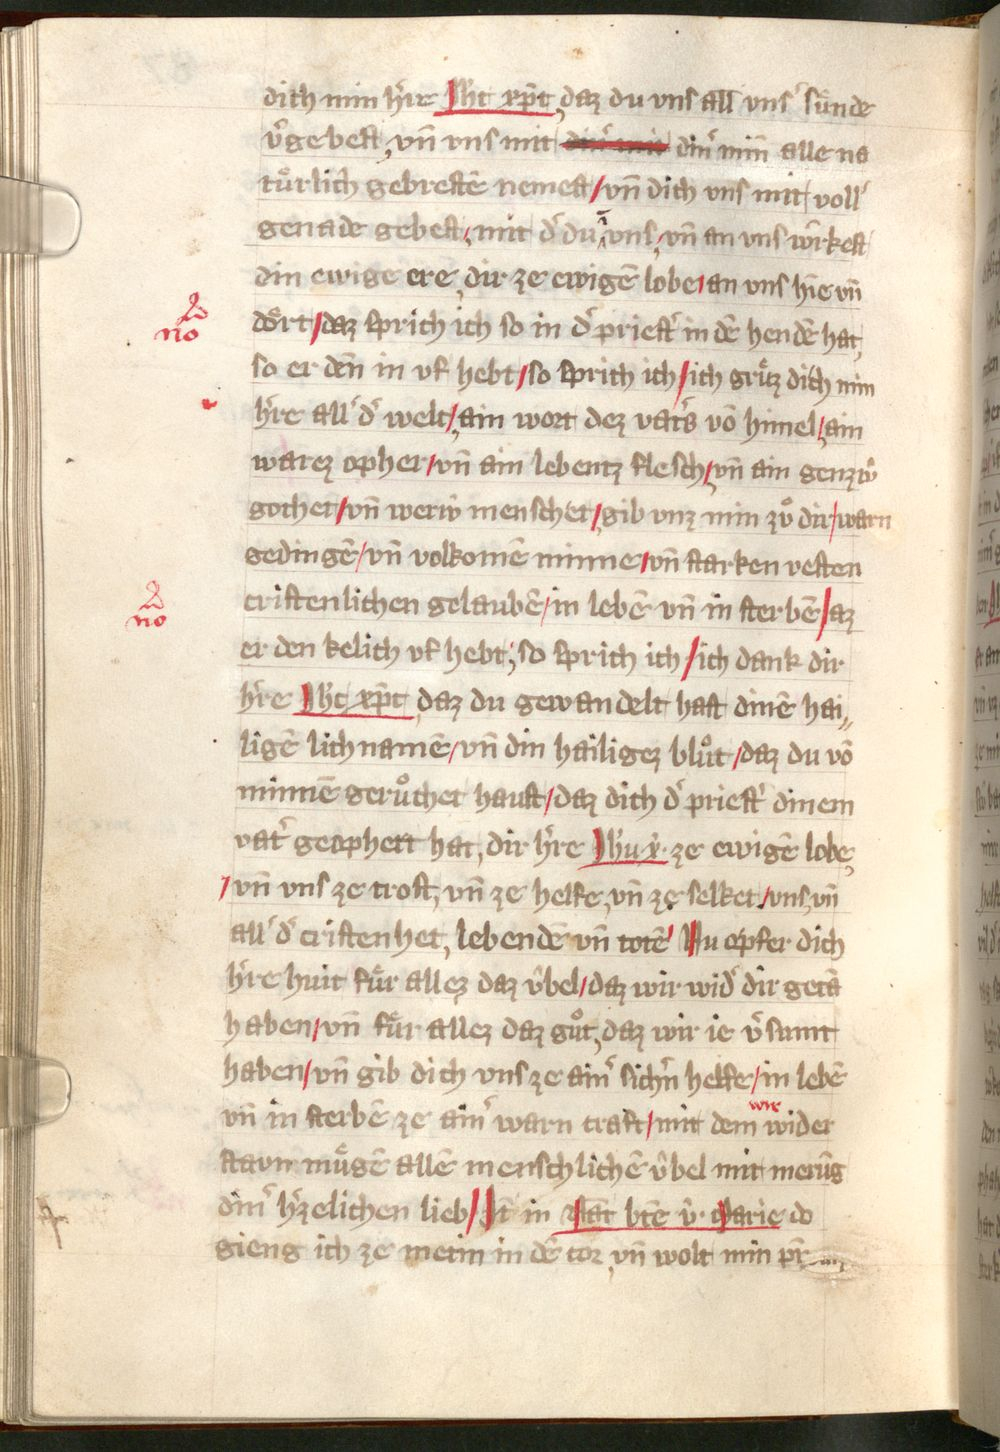 dich min h̾re Jh̾c xp̄c, daz du vns all̾ vns̾ sünde
v̾gebest, vn̄ vns mit din̾ min̄ alle na
tu̍rlich gebrestē nemest / vn̄ dich vns mit voll̾
genade gebest, mit d̾ du ī vns, vn̄ an vns wu̍rkest
din ewige ere, dir ze ewigē lobe / an vns hie vn̄
do̍rt / daz sprich ich so in d̾ priest̾ in dē hendē hat,
no
so er dēn in vf hebt / so sprich ich / ich gru̍z dich min
h̾re all̾ d̾ welt / ain wort dez vat̾s vō himel / ain
warez opher / vn̄ ain lebentz flesch, vn̄ ain genziv̍
gothet / vn̄ weriv̍ menschet / gib vnz min zv̊ dir / warn
gedingē / vn̄ volkomē minne / vn̄ starken vesten
cristenlichen gelaubē / in lebē vn̄ in sterbē / az
no
er den kelich vf hebt, so sprich ich / ich dank dir
h̾re Jh̾c xp̄c, daz du gewandelt hast dinē hai〃
ligē lichnamē / vn̄ din hailigez blůt / daz du vō
minnē gerůchet haust / daz dich d̾ priest̾ dinem
vat̾ geophert hat, dir h̾re Jh̾u x̾. ze ewigē lobe,
/ vn̄ vns ze trost, vn̄ ze helfe, vn̄ ze selket / vns, vn̄
all̾ d̾ cristenhet, lebendē vn̄ totē Nu opfer dich
h̾re huit fu̍r allez daz v̍bel / daz wir wid̾ dir getā
haben / vn̄ fu̍r allez daz gůt, daz wir ie v̾sumt
haben / vn̄ gib dich vns ze ain̾ sich̾n helfe / in lebē
vn̄ in sterbē ze ain̾ warn craft / mit dem wir wider
starm mu̍gē allē menschlichē v̍bel mit merūg
din̾ h̾zelichen lieb / Jt̄ in bt̄e v̾. Marie do
gieng ich ze metin in dē cor, vn̄ wolt min pr̄